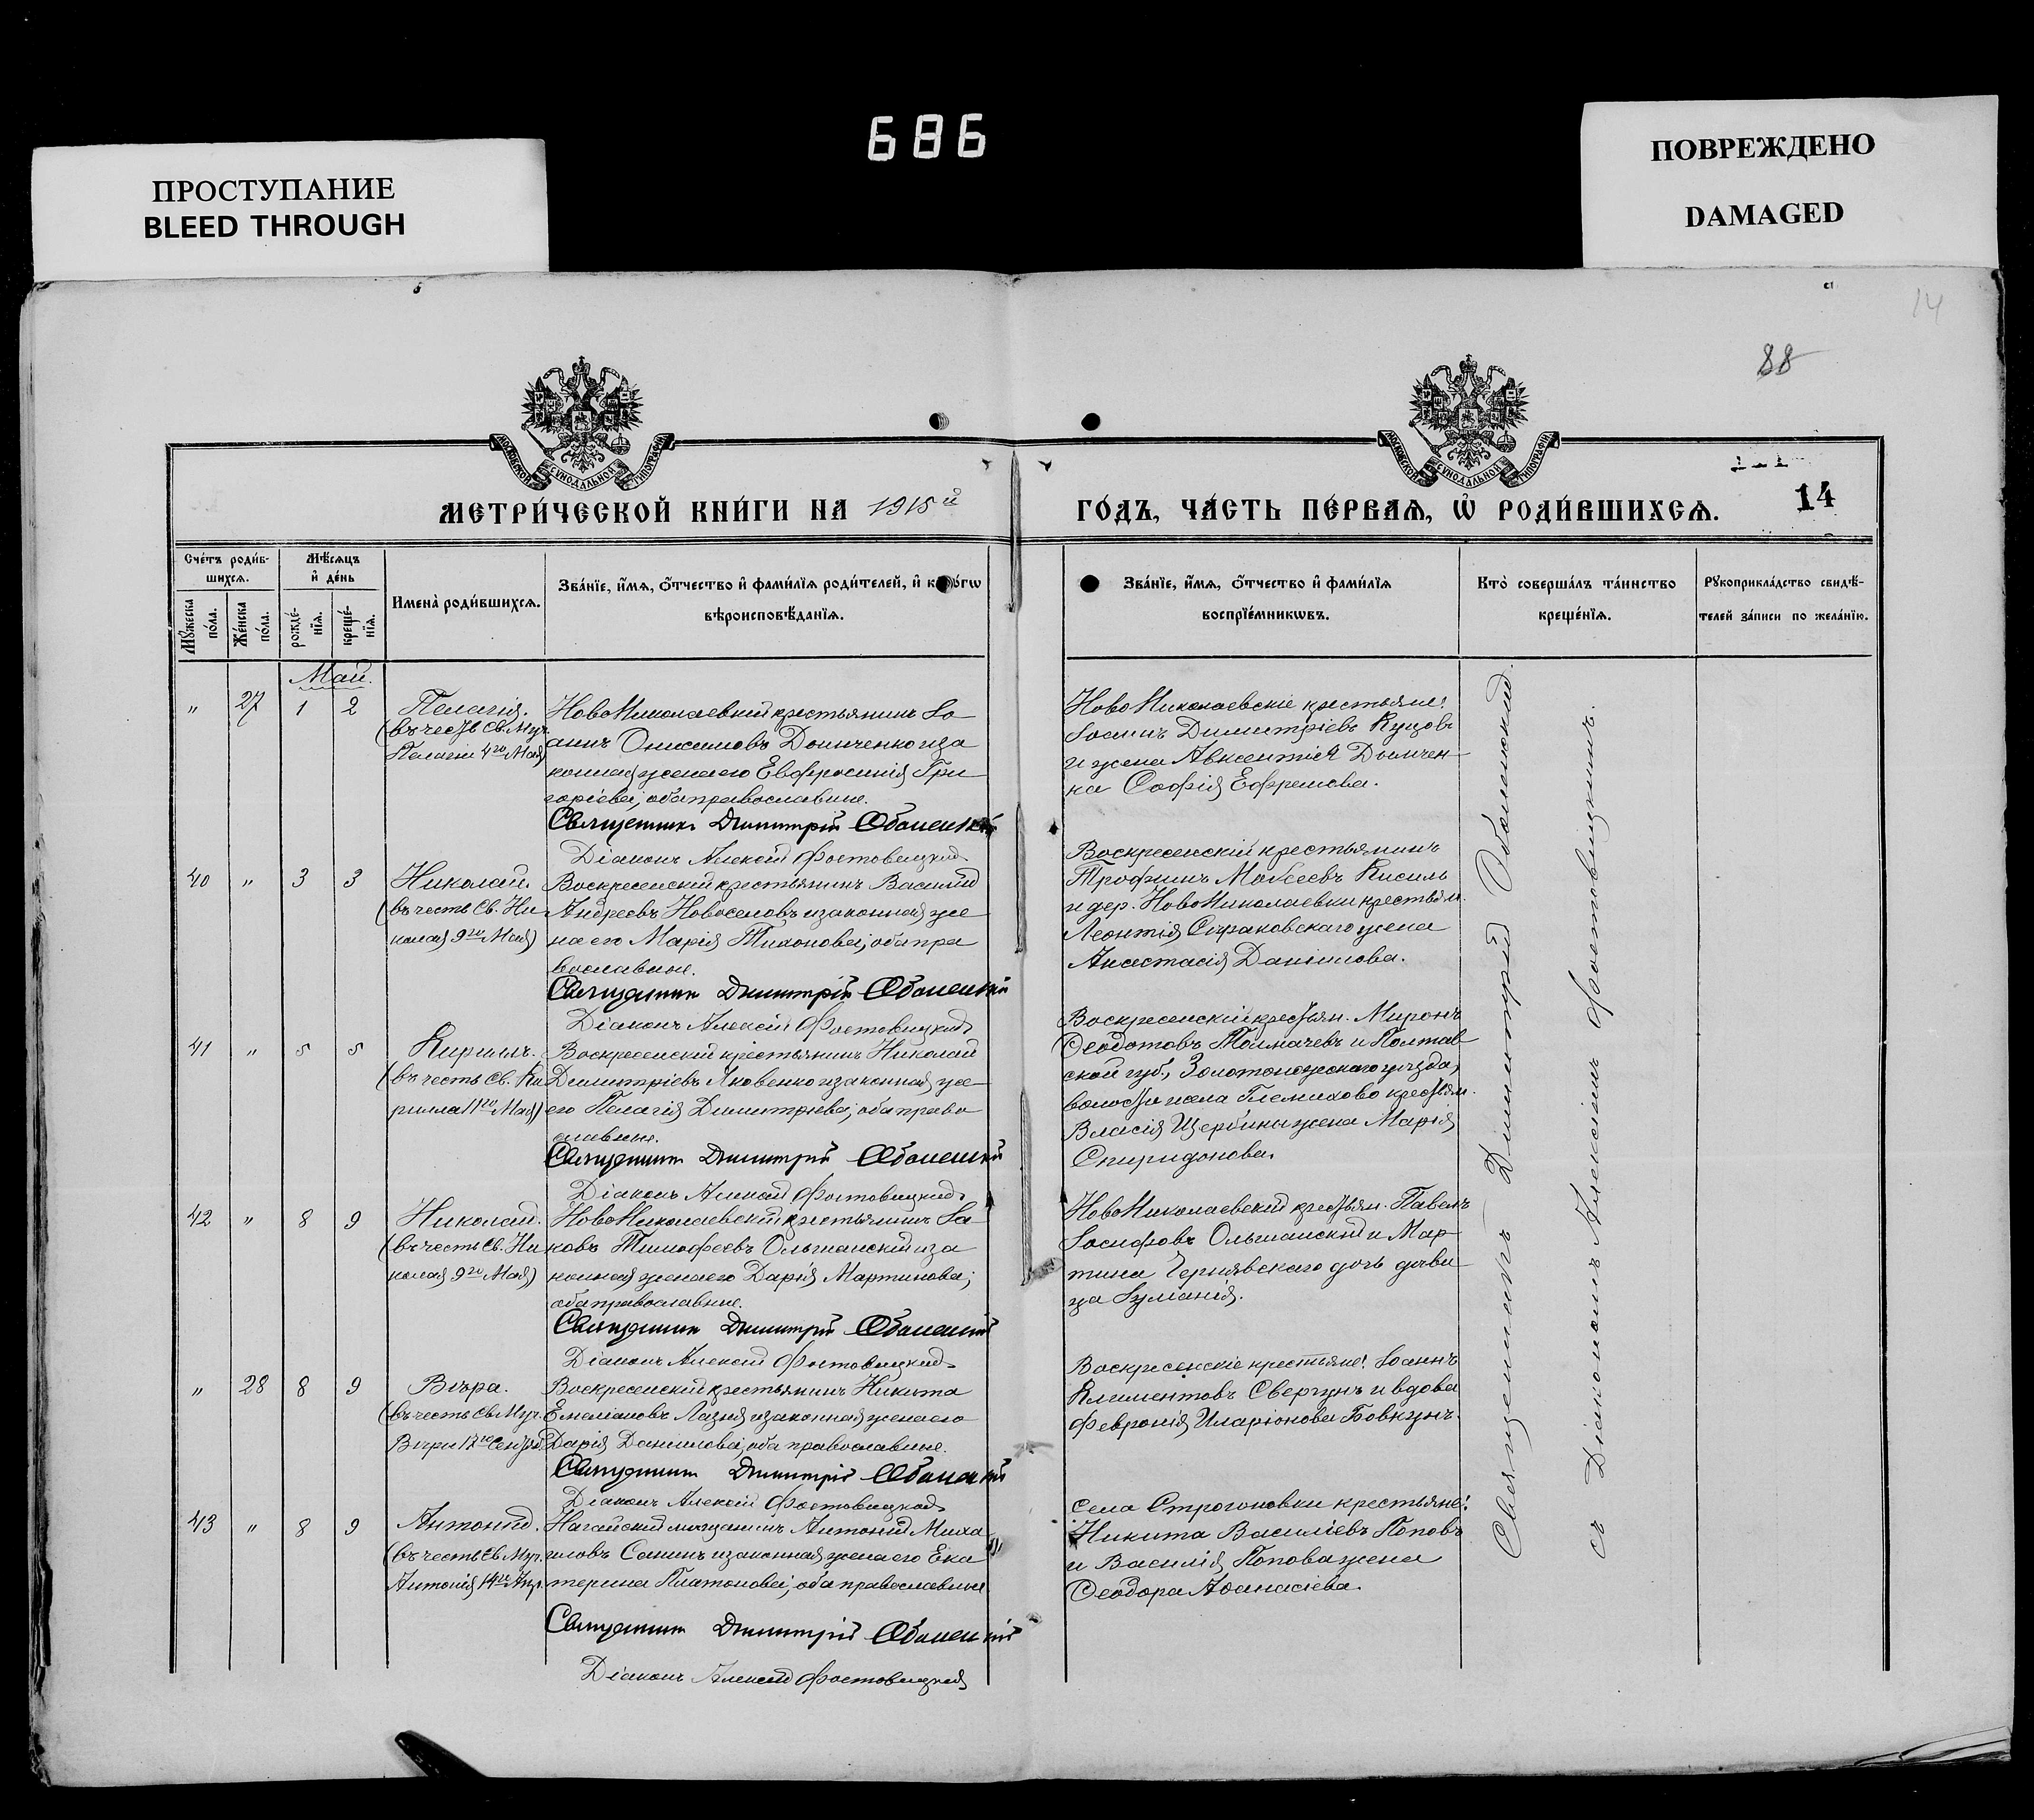 686
ПРОСТУПАНИЕ
BLEED THROUGH
ПОВРЕЖДЕНО
DAMAGED
14
88
МОСКОВСКОЙ СУНОДАЛЬНОЙ ТИПОГРАФІИ
МОСКОВСКОЙ СУНОДАЛЬНОЙ ТИПОГРАФІИ
МЕТРИ́ЧЕСКОЙ КНИ́ГИ НА 1915й
ГО́ДЪ, ЧА́СТЬ ПЕ́РВАѦ, Ѽ РОДИ́ВШИХСѦ.
14
Счéтъ роди́в-
шихсѧ.
Мꙋ́жеска
по́ла.
Же́нска
по́ла.
Мѣ́сѧцъ
и҆ де́нь
рожде́-
нїѧ.
креще́-
нїѧ.
И҆мена̀ роди́вшихсѧ.
Зва́нїе, и҆́мѧ, ѻ҆́тчество и҆ фами́лїѧ роди́телей, и҆ ко́гѡ
вѣроисповѣ́данїѧ.
Зва́нїе, и҆́мѧ, ѻ҆́тчество и҆ фами́лїѧ
воспрїе́мникѡвъ.
Кто̀ соверша́лъ та́инство
креще́нїѧ.
Рꙋкоприкла́дство свидѣ́-
телей за́писи по жела́нїю.
Май.
" 27 1 2
Пелагія.
(въ честь Св. Муч.
Пелагіи 4го Мая)
НовоНиколаевскій крестьянинъ Іо-
аннъ Онисимовъ Домченко и за
конная жена его Евфросинія Гри-
горіева; оба православные.
Священникъ Димитрій Оболенскій
Діаконъ Алексій Фостовицкій
НовоНиколаевскіе крестьяне:
Іоаннъ Димитріевъ Куцовъ
и жена Авксентія Домчен-
ка Софія Ефремова.
40 " 3 3
Николай.
(въ честь Св. Ни-
колая 9го Мая)
Воскресенскій крестьянинъ Василій
Андреевъ Новоселовъ и законная же
на его Марія Тихонова; оба пра
вославные.
Священникъ Димитрій Оболенскій
Діаконъ Алексій Фостовицкій
Воскресенскій крестьянинъ
Трофимъ Моѵсеевъ Кисиль
и дер. НовоНиколаевки крестьян.
Леонтія Сираковскаго жена
Анастасія Данилова.
41 " 5 5
Кириллъ.
(въ честь Св. Ки
рилла 11го Мая)
Воскресенскій крестьянинъ Николай
Димитріевъ Яковенко и законная же-
его Пелагія Димитріева; оба право
славные.
Священникъ Димитрій Оболенскій
Діаконъ Алексій Фостовицкій
Воскресенскій крестьян. Миронъ
Ѳеодотовъ Толмачевъ и Полтав-
ской губ., Золотоношскаго уѣзда,
волости и села крестьян.
Власія Щербины жена Марія
Спиридонова.
42 " 8 9
Николай.
(въ честь Св. Ни
колая 9го Мая)
НовоНиколаевскій крестьянинъ Іа-
ковъ Тимофеевъ Ольшанскій и за
конная жена его Дарія Мартинова;
оба православные.
Священникъ Димитрій Оболенскій
Діаконъ Алексій Фостовицкій
НовоНиколаевскій крестьян. Павелъ
Іосифовъ Ольшанскій и Мар-
тина Чернявскаго дочь дѣви-
ца Іуліанія.
" 28 8 9
Вѣра.
(въ честь Св. Муч.
Вѣры 17го Сентяб.
Воскресенскій крестьянинъ Никита
Емеліановъ Лазня и законная жена его
Дарія Данилова; оба православные.
Священникъ Димитрій Оболенскій
Діаконъ Алексій Фостовицкій
Воскресенскіе крестьяне: Іоаннъ
Климентовъ Свергунъ и вдова
Февронія Иларіонова Бовкунъ.
43 " 8 9
Антоній.
(въ честь Св. Муч.
Антонія 14го Апр.
Нагайскій мѣщанинъ Антоній Миха
иловъ Санинъ и законная жена его Ека
терина Платонова; оба православные
Священникъ Димитрій Оболенскій
Діаконъ Алексій Фостовицкій
Села Строгоновки крестьяне:
Никита Василіевъ Поповъ
и Василія Попова жена
Ѳеодора Аѳанасіева.
Священникъ Димитрій Оболенскій
съ Діакономъ Алексіемъ Фостовицкимъ.